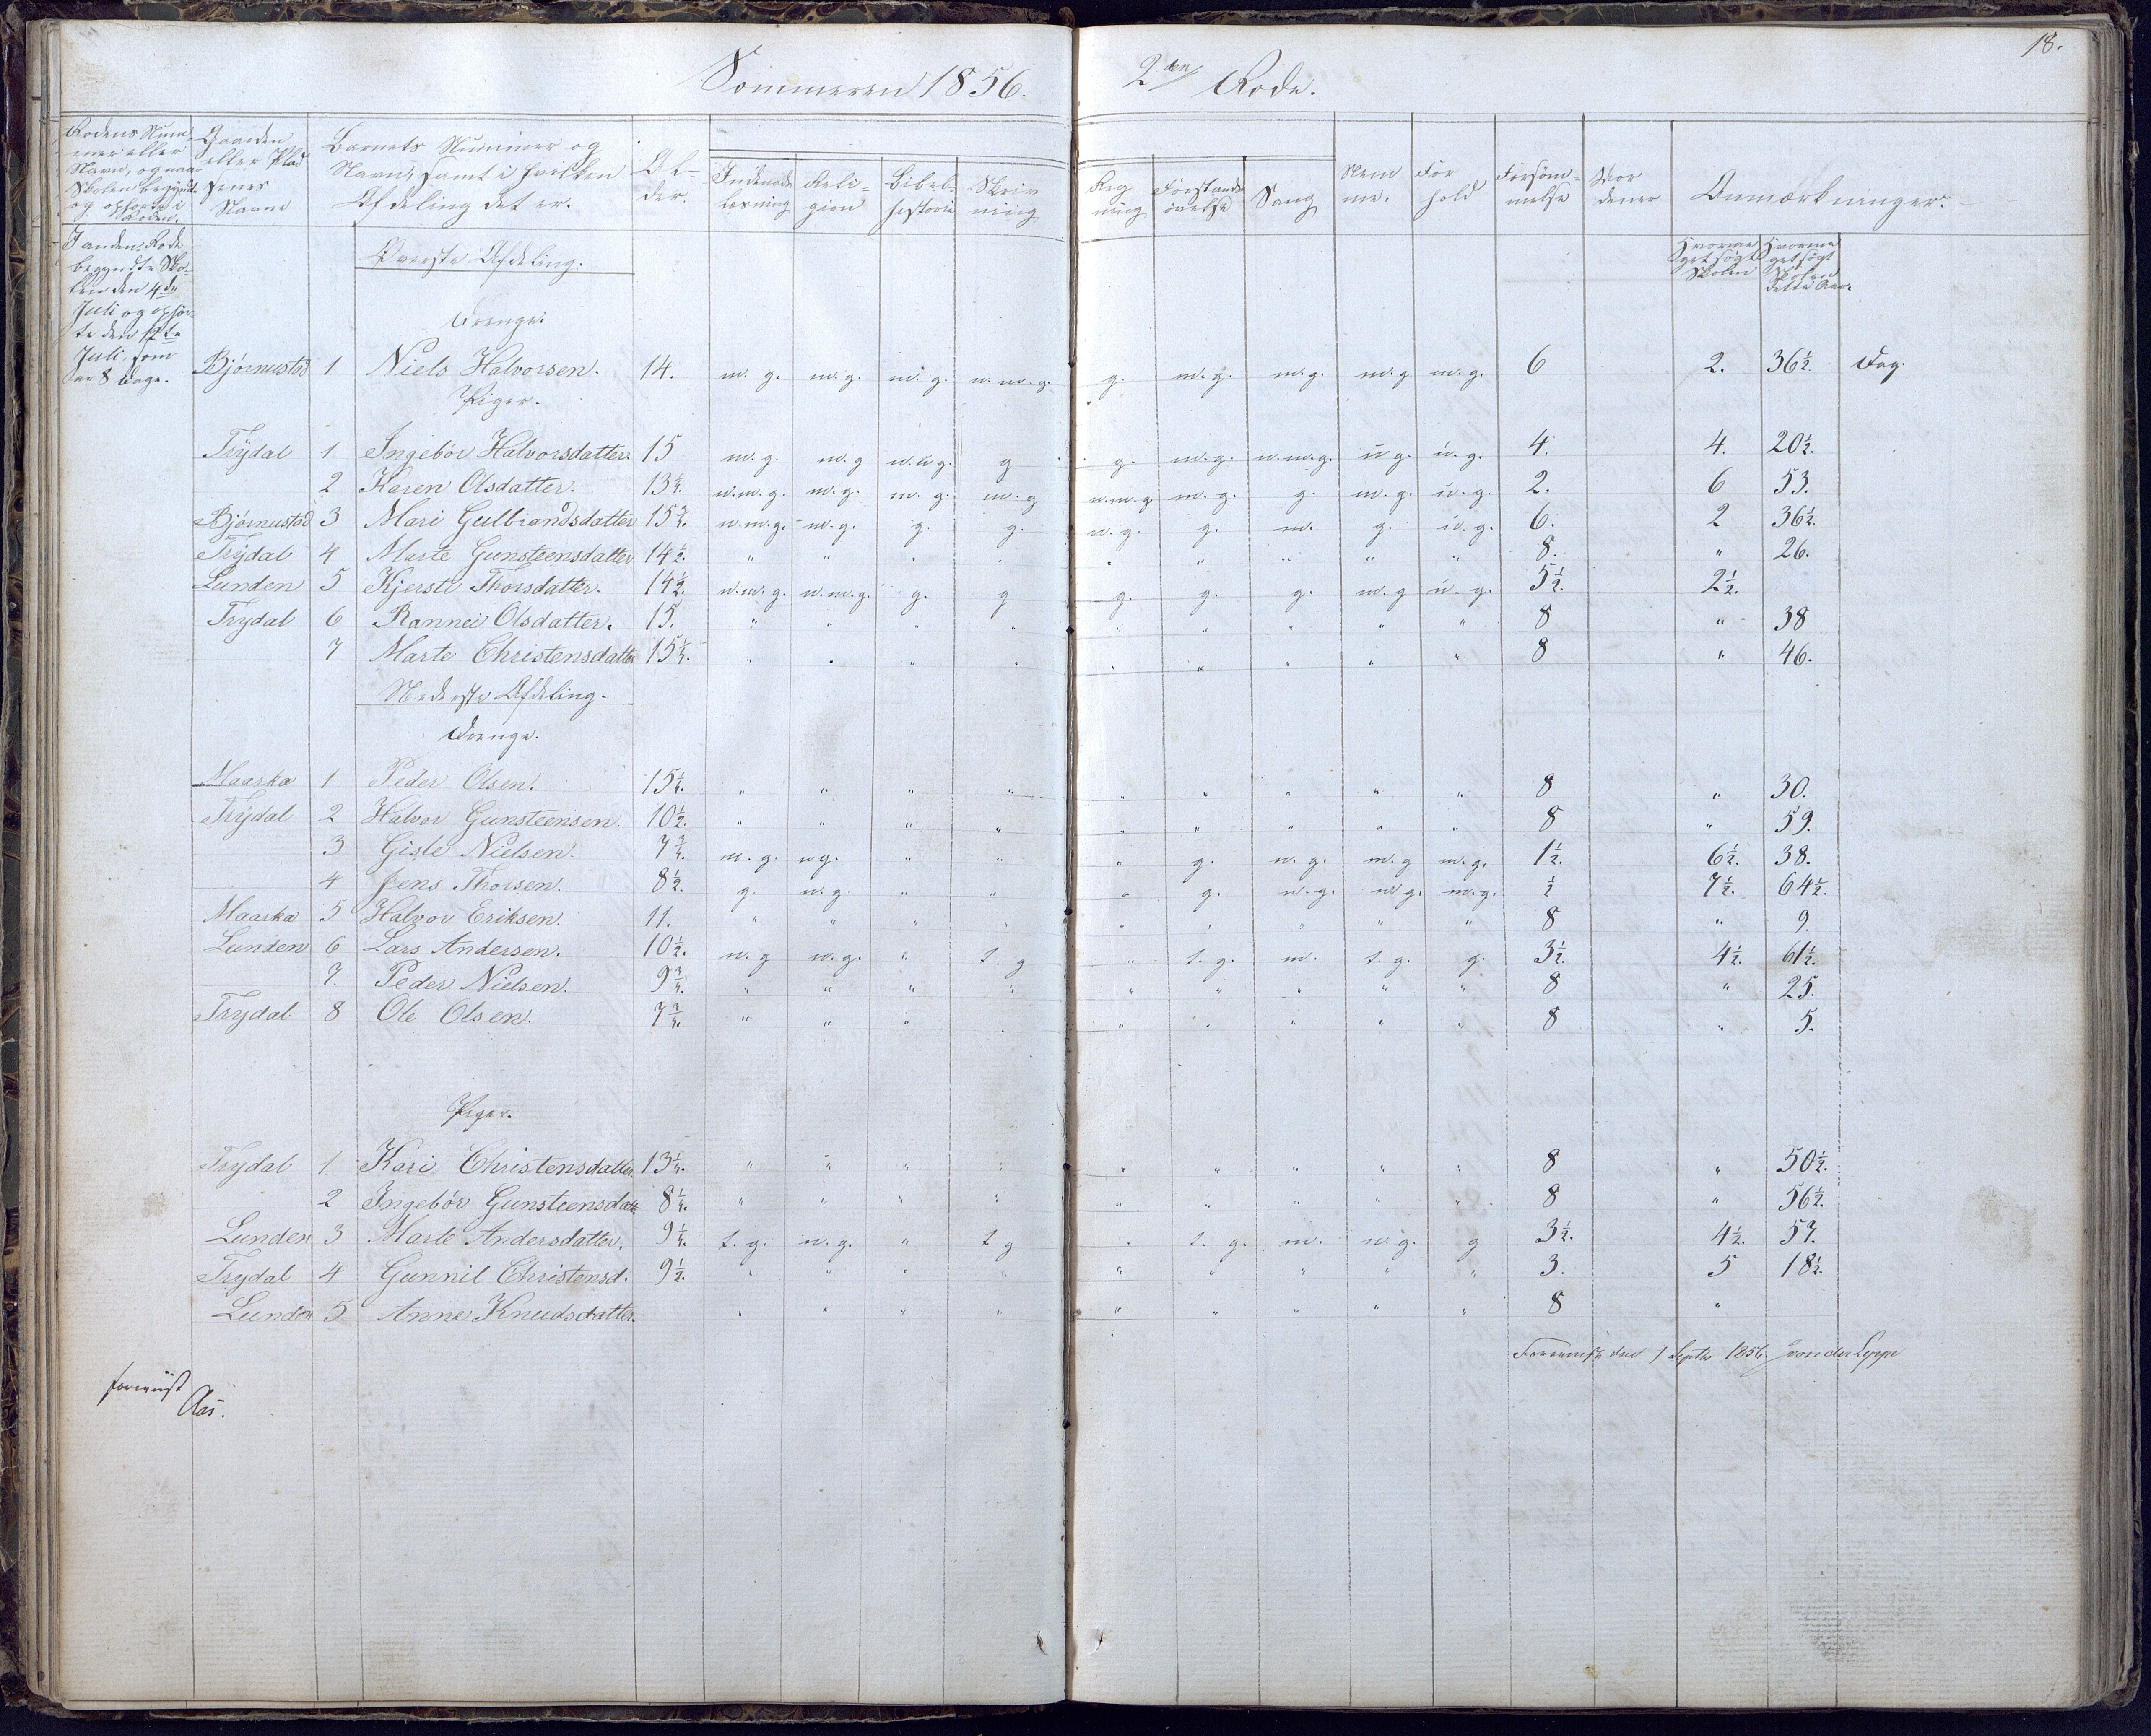 18.
Sommeren 1856. 2den Rode.
Rodens Num- mer eller Navn, og naar Skolen begynte og ophorte i Roden. | Gaarden eller Plad- senes Navn | Barnets Nummer og Navn, samt i hvilken Afdeling det er. | Al- der. | Indenads- læsning | Reli- gion | Bibel- historie | Skriv- ning | Reg- ning | Forstands- övelse | Sang | Nem- me. | For- hold | Forsöm- melse | Anmærkninger.
Hvorme- get sögt Skolen | Hvorme- get sögt Skolen dette Aar.
I anden Rode
begyndte Sko-
len den 4de
Juli og ophör-
te den
Juli, som
er 8 Dage.
Överste Afdeling.
Drenge.
Bjørnustød 1 Niels Halvorsen. 14. m. g. m. g. m. g. n. m. g. g. m. g. m. g. m. g m. g. 6 2. 36½. Dag.
Piger.
Trydal 1 Ingebör Halvorsdatter. 15 m. g. m. g n. u g. g g. m. g. n. m. g. u g. u. g. 4. 4. 20½.
2 Karen Olsdatter. 13¼. n. m. g. m. g. m. g. m. g n. m. g m. g. g. m. g. u. g. 2. 6 53.
Bjørnustød 3 Mari Gulbrandsdatter 15¾. n. m. g. m. g. g. g. n. g. g. m. g. u. g. 6. 2 36½.
Trydal 4 Marte Gunsteensdatter 14½. " " " " " " " " " 8. " 26.
Lunden 5 Kjersti Thorsdatter. 14½. n. m. g. n. m. g. g. g g. g. g. m. g u. g. 5½. 2½.
Trydal 6 Rannei Olsdatter. 15. " " " " " " " " " 8 " 38
7 Marte Christensdatter 15¼. " " " " " " " " " 8 " 46.
Nederste Afdeling.
Drenge.
Maarka 1 Peder Olsen. 15¼. " " " " " " " " " 8 " 30.
Trydal 2 Halvor Gunsteensen. 10½. " " " " " " " " " 8 " 59.
3 Gisle Nielsen. 7¾. m. g. n g. " " " g. n. g. m. g m. g. 1½. 6½. 38.
4 Jens Thorsen. 8½. g. n. g. " " " g. n. g. m g. m. g. ½ 7½. 64½.
Maarka 5 Halvor Eriksen. 11. " " " " " " " " " 8 " 9.
Lunden 6 Lars Andersen. 10½. n. g n. g. " t. g " t. g. m. t. g. g. 3½. 4½. 61½.
7. Peder Nielsen. 9¾. " " " " " " " " " 8 " 25.
Trydal 8 Ole Olsen. 7¾. " " " " " " " " " 8 " 5.
Piger.
Trydal 1 Kari Christensdatter. 13¼. " " " " " " " " " 8 " 50½.
2 Ingebör Gunsteensdatt 8¼. " " " " " " " " " 8 " 56½.
Lunden 3 Marte Andersdatter. 9¼. t. g. n. g. " t g " t. g. m. n. g. g 3½. 4½. 57.
Trydal 4 Gunnil Christensd. 9½. " " " " " " " " " 3. 5 18½.
Lunden 5 Anne Knudsdatter. " " " " " " " " " 8 "
Foreviist den 1 Septbr 1856 von der Lippe
foreviist
Aas.